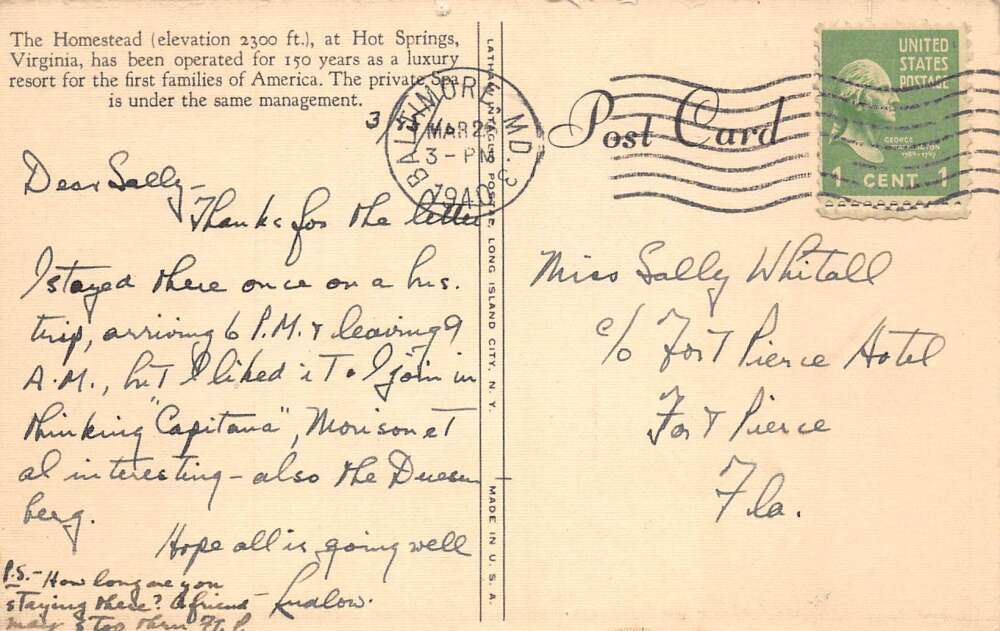 The Homestead (elevation 2300 ft.), at Hot Springs,
Virginia, has been operated for 150 years as a luxury
resort for the first families of America. The private Spa
is under the same management.
Dear Sally-
Thanks for the letter
I stayed there once on a bus.
trip, arriving 6 P.M. & leaving 9
A.M., but I liked it. I join in
thinking "Capitana", Morison et
al interesting - also the Duesen
berg.
Hope all is going well
Ludlow.
P.S. - How long are you
staying there? A friend
may stop thru Ft. P.
LONG ISLAND CITY, N. Y.
MADE IN U. S. A.
BALTIMORE, MD. 3
MAR 2
3 - PM
1940
Post Card
UNITED
STATES
POSTAGE
GEORGE
WASHINGTON
1789-1797
1 CENT 1
Miss Sally Whitall
c/o Fort Pierce Hotel
Fort Pierce
Fla.